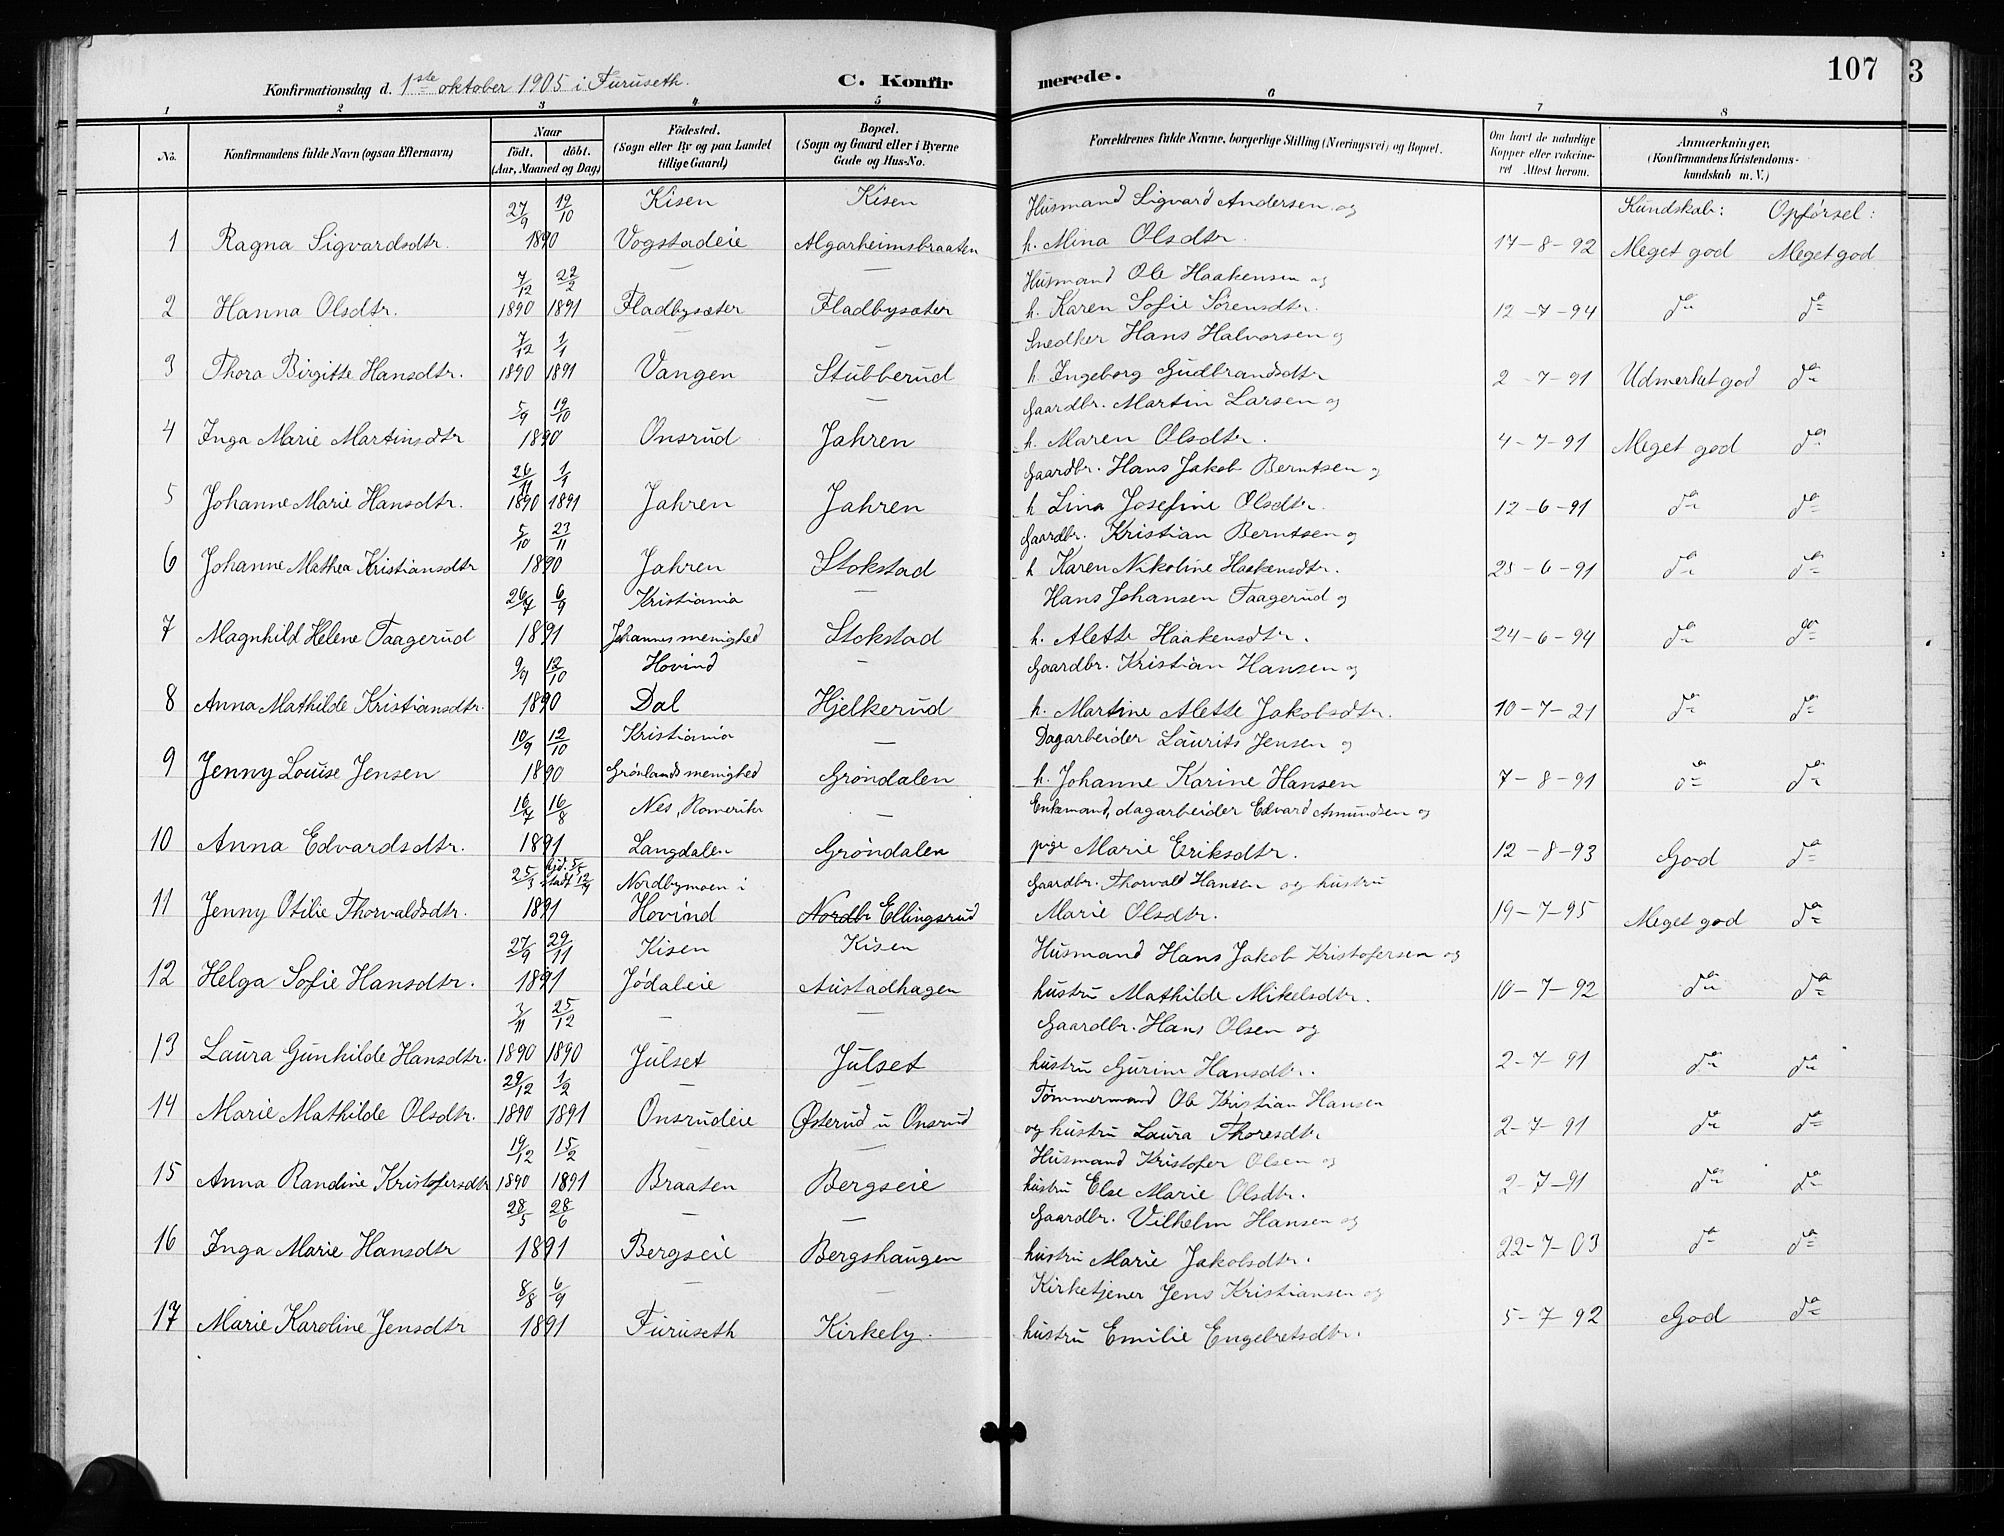 Konfirmationsdag d. 1ste oktober 1905 i Furuseth. C. Konfirmerede. 107 3
1 2 3 4 5 6 7 8
No. Konfirmandens fulde Navn (ogsaa Efternavn) Naar födt, döbt. (Aar, Maaned og Dag) Födested. (Sogn eller By og paa Landet tillige Gaard) Bopæl. (Sogn og Gaard eller i Byerne Gade og Hus-No. Forældrenes fulde Navne, borgerlige Stilling (Næringsvei) og Bopæl. Om havt de naturlige Kopper eller vakcineret Attest herom. Anmerkninger. (Konfirmandens Kristendomskundskab m. V.)
27/9 19/10 Kisen Kisen Husmand Sigvard Andersen og Kundskab: Opførsel:
1 Ragna Sigvardsdtr. 1890 Vogstadeie Algarheimsbraaten h. Mina Olsdtr. 17-8-92 Meget god Meget god
7/12 22/2 — — Husmand Ole Haakensen og
2 Hanna Olsdtr. 1890 1891 Fladbysæter Fladbysæter h. Karen Sofie Sørensdtr. 12-7-94 do do
7/12 1/1 — — Snedker Hans Halvorsen og
3 Thora Birgitte Hansdtr. 1890 1891 Vangen Stubberud h Ingeborg Gudbrandsdtr 2-7-91 Udmerket god do
5/9 19/10 — — Gaardbr. Martin Larsen og
4 Inga Marie Martinsdtr 1890 Onsrud Jahren h. Maren Olsdtr. 4-7-91 Meget god do
26/11 1/1 Gaardbr. Hans Jakob Berntsen og
5 Johanne Marie Hansdtr. 1890 1891 Jahren Jahren h Lina Josefine Olsdtr. 12-6-91 do do
5/10 23/11 Gaardbr. Kristian Berntsen og
6 Johanne Mathea Kristiansdtr 1890 Jahren Stokstad h Karen Nikoline Haakensdtr. 25-6-91 do do
26/7 6/9 Kristiania — Hans Johansen Taagerud og
7 Magnhild Helene Taagerud 1891 Johannes menighed Stokstad h. Alette Haakensdtr. 24-6-94 do do
9/9 12/10 Hovind — Gaardbr. Kristian Hansen og
8 Anna Mathilde Kristiansdtr. 1890 Dal Hjelkerud h. Martine Alette Jakobsdtr. 10-7-21 do do
10/9 12/10 Kristiania — Dagarbeider Laurits Jensen og
9 Jenny Louise Jensen 1890 Grønlands menighed Grøndalen h. Johanne Karine Hansen 7-8-91 do do
16/7 16/8 Nes, Romerike — Enkemand, dagarbeider Edvard Asmundsen og
10 Anna Edvardsdtr. 1891 Langdalen Grøndalen pige Marie Eriksdtr. 12-8-93 God do
25/3 Nordbymoen i Gaardbr. Thorvald Hansen og hustru
11 Jenny Otilie Thorvaldsdtr. 1891 Hovind Nordbr Ellingsrud Marie Olsdtr. 19-7-95 Meget god do
27/9 29/11 Kisen Kisen Husmand Hans Jakob Kristofersen og
12 Helga Sofie Hansdtr. 1891 Jødaleie Austadhagen hustru Mathilde Mikelsdtr. 10-7-92 do do
3/11 25/12 — — Gaardbr. Hans Olsen og
13 Laura Gunhilde Hansdtr. 1890 1890 Julset Julset hustru Gurine Hansdtr. 2-7-91 do do
29/12 1/2 — — Tømmermand Ole Kristian Hansen
14 Marie Mathilde Olsdtr. 1890 1891 Onsrudeie Østerud u Onsrud og hustru Laura Thoresdtr 2-7-91 do do
19/12 15/2 — Husmand Kristofer Olsen og
15 Anna Randine Kristofersdtr 1890 1891 Braaten Bergseie hustru Else Marie Olsdtr. 2-7-91 do do
28/5 28/6 — — Gaardbr. Vilhelm Hansen og
16 Inga Marie Hansdtr 1891 Bergseie Bergshaugen hustru Marie Jakobsdtr. 22-7-03 do do
8/8 6/9 — — Kirketjener Jens Kristiansen og
17 Marie Karoline Jensdtr 1891 Furuseth Kirkeby. hustru Emilie Engebretsdtr. 5-7-92 God do